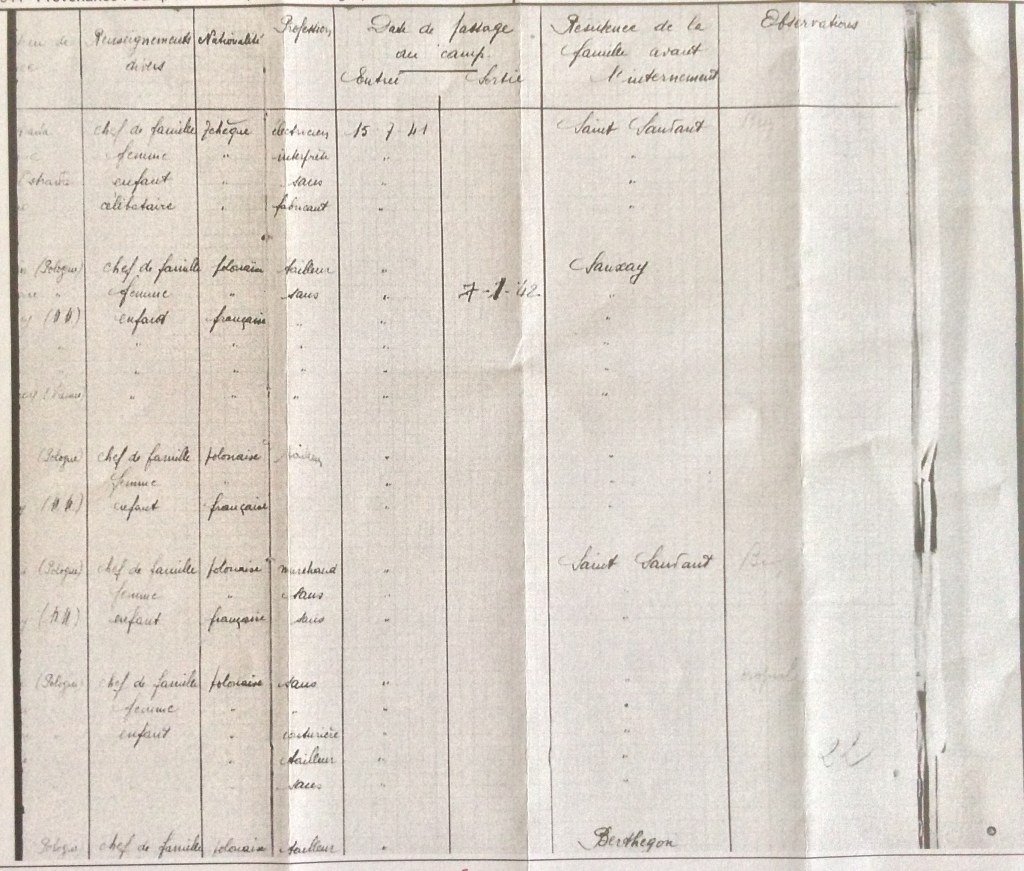 Renseignements Nationalité Profession Date de passage Residence de la Observations
divers au camp famille avant
Entrée Sortie l'internement
chef de famille Tchèque électricien 15 7 41 Saint Sauvant
femme " interprète " "
enfant " sans " "
célibataire " fabricant " "
(Pologne) chef de famille polonaise tailleur " Sanxay
" femme " sans " 7-1-42 "
(M.M.) enfant française " " "
" " " " "
" " " " "
" " " " "
(Pologne) chef de famille polonaise " "
femme " " "
(M.M.) enfant française " "
(Pologne) chef de famille polonaise marchand " Saint Sauvant
femme " sans "
(M.M.) enfant française sans " "
(Pologne) chef de famille polonaise sans " "
" femme " " " "
" enfant " couturière " "
" tailleur " "
" sans " "
Pologne chef de famille polonaise tailleur " Berthegon
22